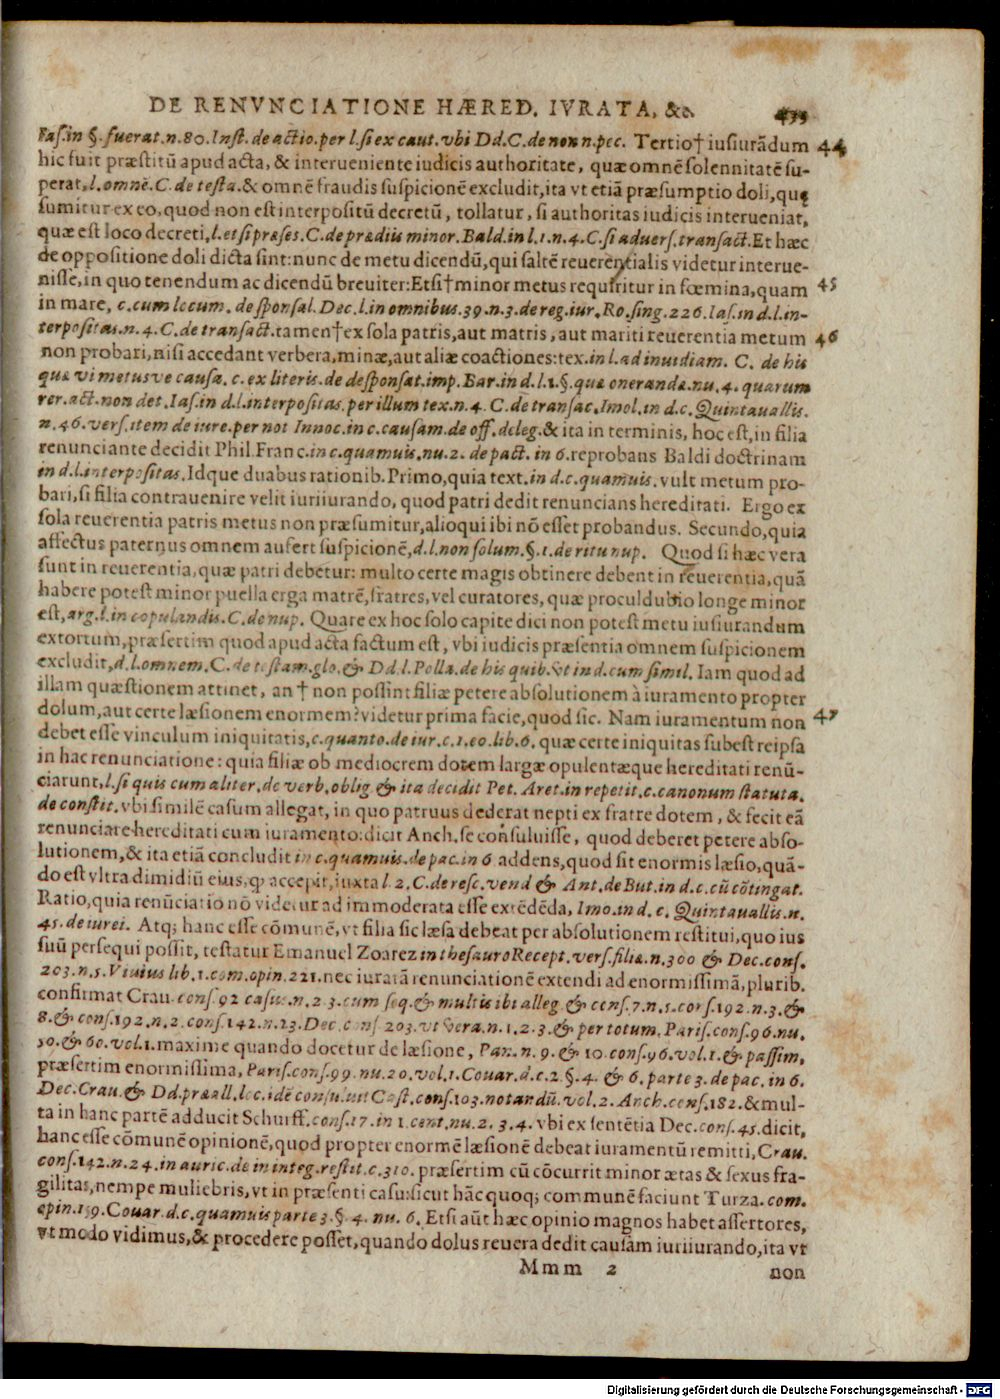 DE RENVNCIATIONE HÆRED. IVRATA, &c. 455
Ias.in §. fuerat.n.80.Inst. de actio.per l.si ex caut. vbi Dd.C. de non n.pec. Tertio† iusiurãdum 44
hic fuit præstitũ apud acta, & interueniente iudicis authoritate, quæ omnẽ solennitatẽ su-
perat,l.omnẽ.C. de testa.& omnẽ fraudis suspicionẽ excludit,ita vt etiã præsumptio doli,quę
sumitur ex eo,quod non est interpositũ decretũ, tollatur, si authoritas iudicis interueniat,
quæ est loco decreti,l.et si præses.C.de prædiis minor. Bald.in l.1.n.4.C. si aduers.transact.Et hæc
de oppositione doli dicta sint:nunc de metu dicendũ,qui saltẽ reuerentialis videtur interue-
nisse,in quo tenendum ac dicendũ breuiter:Etsi†minor metus requiritur in fœmina,quam 45
in mare, c.cum locum. de sponsal. Dec.l.in omnibus.39.n.3.de reg.iur. Ro.sing.226.Ias.in d.l.in-
terpositas.n.4.C.de transact.tamen†ex sola patris,aut matris, aut mariti reuerentia metum 46
non probari,nisi accedant verbera,minæ,aut aliæ coactiones:tex.in l.ad inuidiam. C. de his
quæ vi metusve causa. c. ex literis.de desponsat.imp.Bar.in d.l.1.§.quæ oneranda.nu.4. quarum
rer.act.non det.Ias.in d.l.interpositas.per illum tex.n.4. C.de transac.Imol.in d.c. Quintauallis.
n.46.vers.item de iure.per not Innoc.in c.causam.de off. deleg.& ita in terminis, hoc est,in filia
renunciante decidit Phil.Franc.in c.quamuis.nu.2. de pact. in 6.reprobans Baldi doctrinam
in d.l.interpositas.Idque duabus rationib.Primo,quia text.in d.c.quamuis.vult metum pro-
bari,si filia contrauenire velit iuriiurando, quod patri dedit renuncians hereditati. Ergo ex
sola reuerentia patris metus non præsumitur,alioqui ibi nõ esset probandus. Secundo,quia
affectus paternus omnem aufert suspicionẽ,d.l.non solum.§.1.de ritu nup. Quod si hæc vera
sunt in reuerentia,quæ patri debetur: multo certe magis obtinere debent in reuerentia,quã
habere potest minor puella erga matrẽ,fratres,vel curatores, quæ proculdubio longe minor
est,arg.l.in copulandis.C.de nup. Quare ex hoc solo capite dici non potest metu iusiurandum
extortum,præsertim quod apud acta factum est, vbi iudicis præsentia omnem suspicionem
excludit,d.l.omnem.C. de testam.glo.& Dd.l.Polla.de his quib.vt in d.cum simil. Iam quod ad
illam quæstionem attinet, an† non possint filiæ petere absolutionem à iuramento propter
dolum,aut certe læsionem enormem?videtur prima facie,quod sic. Nam iuramentum non 47
debet esse vinculum iniquitatis,c.quanto.de iur.c.1.eo.lib.6. quæ certe iniquitas subest reipsa
in hac renunciatione: quia filiæ ob mediocrem dotem largæ opulentæque hereditati renũ-
ciarunt,l.si quis cum aliter.de verb.oblig & ita decidit Pet. Aret.in repetit.c.canonum statuta.
de constit.vbi similẽ casum allegat, in quo patruus dederat nepti ex fratre dotem, & fecit eã
renunciare hereditati cum iuramento:dicit Anch.se consuluisse, quod deberet petere abso-
lutionem,& ita etiã concludit in c.quamuis.de pac.in 6 addens,quod sit enormis læsio,quã-
do est vltra dimidiũ eius,q̃ accepit,iuxta l 2.C.de resc.vend & Ant.de But.in d.c.cũ cõtingat.
Ratio,quia renũciatio nõ videtur ad immoderata esse extẽdẽda, Imo.in d.c.Quintauallis.n.
45.de iurei. Atq; hanc esse cõmunẽ,vt filia sic læsa debeat per absolutionem restitui,quo ius
suũ persequi possit, testatur Emanuel Zoarez in thesauro Recept.vers.filia.n.300 & Dec.cons.
203.n.5.Viuius lib.1.com.opin.221.nec iuratã renunciationẽ extendi ad enormissimã,plurib.
confirmat Crau.cons.92 casus.n.23.cum seq.& multis ibi alleg.& cons.7.n.5.cors.192.n.3.&
8.& cons.192.n.2.cons.142.n.23.Dec.cons 203.vt vera.n.1.2.3.& per totum.Paris.cons.96.nu.
50.& 60.vol.1.maxime quando docetur de læsione, Pan.n.9.& 10.cons.96.vol.1.& passim,
præsertim enormissima, Paris.cons.99.nu.20.vol.1.Couar.d.c.2.§.4. & 6.parte 3.de pac.in 6.
Dec.Crau.& Dd.præall.loc.idẽ consuluit Cast.cons.103.notandũ.vol.2. Anch.cons.182.& mul-
ta in hanc partẽ adducit Schurff.cons.17.in 1.cent.nu.2.3.4. vbi ex sentẽtia Dec.cons.45.dicit,
hanc esse cõmunẽ opinionẽ,quod propter enormẽ læsionẽ debeat iuramentũ remitti, Crau.
cons.142.n.24.in auric.de in integ.restit.c.310. præsertim cũ cõcurrit minor ætas & sexus fra-
gilitas,nempe muliebris,vt in præsenti casu:sicut hãc quoq; communẽ faciunt Turza.com.
opin.159.Couar.d.c.quamuis parte 3.§.4. nu. 6. Etsi aũt hæc opinio magnos habet assertores,
vt modo vidimus,& procedere posset,quando dolus reuera dedit causam iuriiurando,ita vt
Mmm 2 non
Digitalisierung gefördert durch die Deutsche Forschungsgemeinschaft - DFG